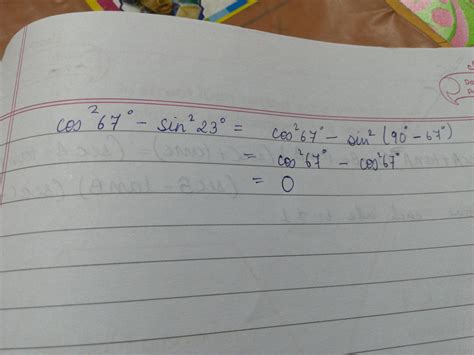 cos²67° - sin²23° = cos²67° - sin²(90° - 67°)
= cos²67° - cos²67°
= 0